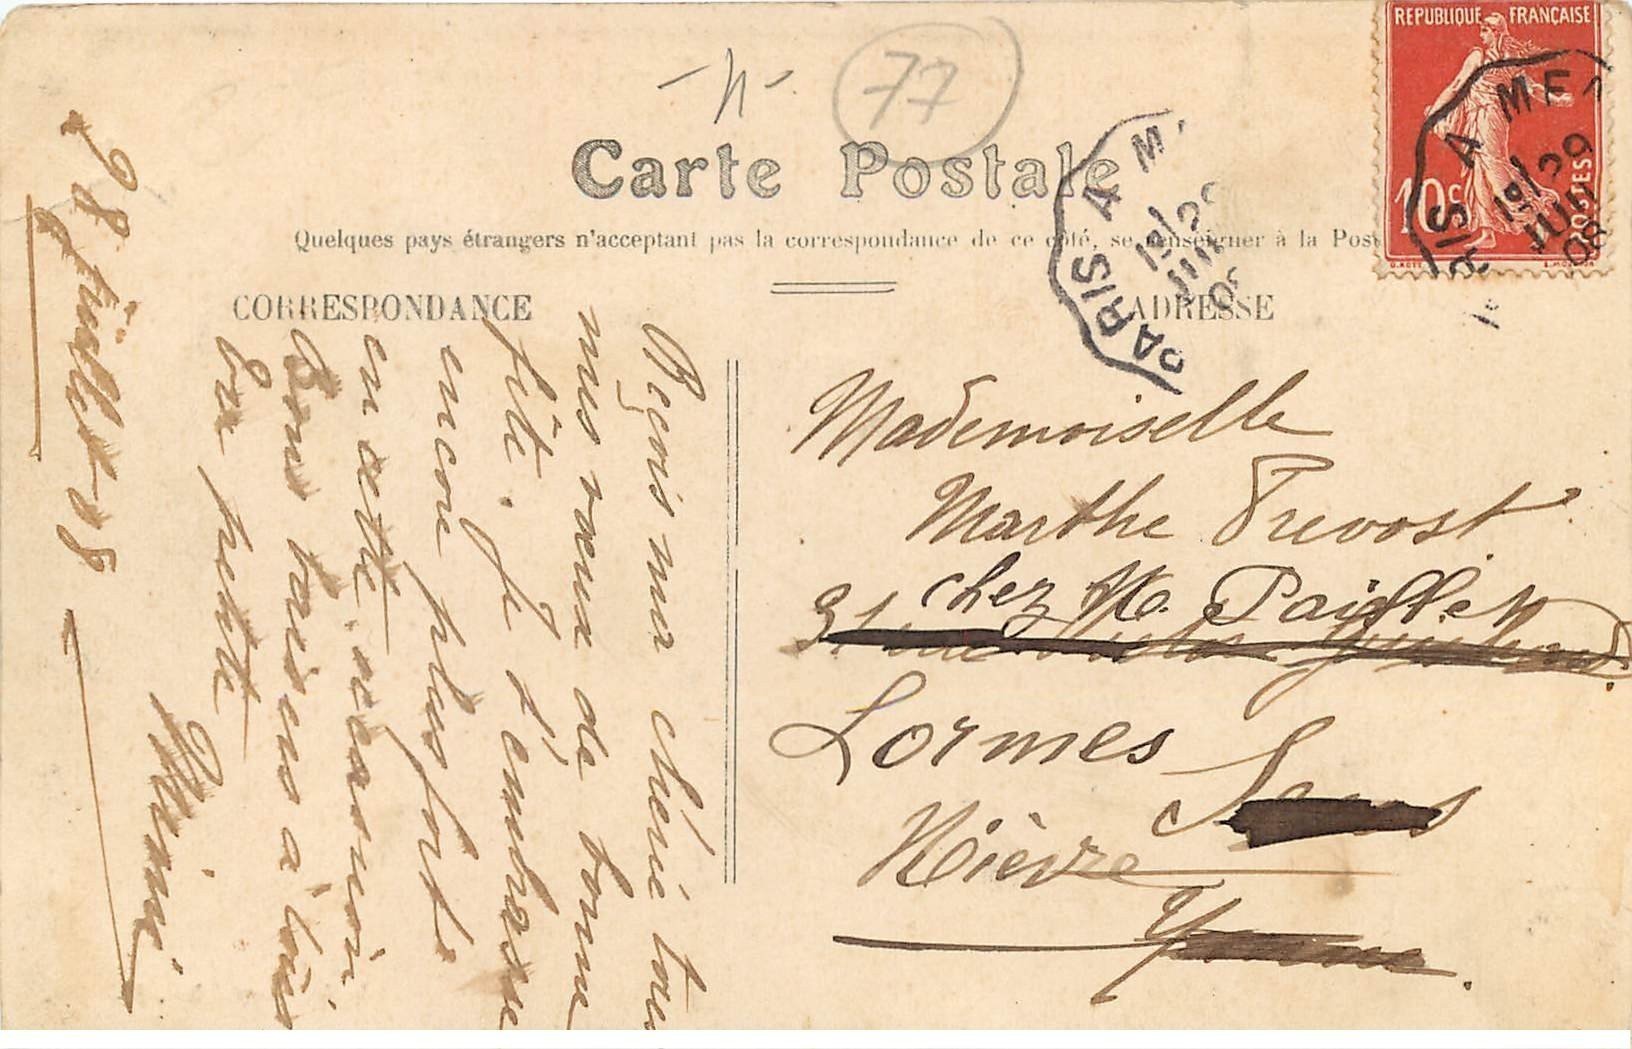 77
Carte Postale
Quelques pays étrangers n'acceptant pas la correspondance de ce côté, se renseigner à la Post
CORRESPONDANCE
ADRESSE
REPUBLIQUE FRANÇAISE
10c
POSTES
PARIS A M
19/29
JUIL
08
RIS A ME
19/29
JUIL
08
28 juillet 08
Reçois ma chérie tous
mes vœux de bonne
fête. Je t'embrasse
encore plus forte
en cette occasion
Bons baisers à tous
Ta petite
Mimi
Mademoiselle
Marthe Prevost
chez M. Paillet
31 rue
Lormes
Sens
Nièvre
Yonne